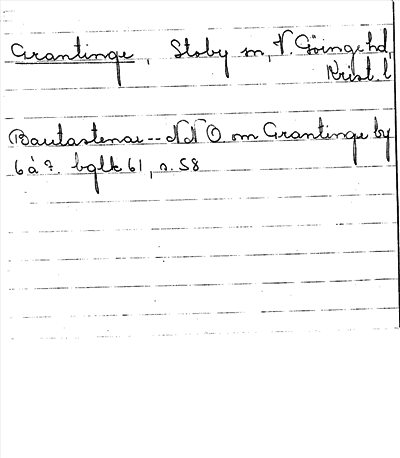 Grantinge, Stoby sn, V. Göinge hd,
Krist. l
Bautastenar -- NNO om Grantinge by
6 à 7. bglk 61, s. 58